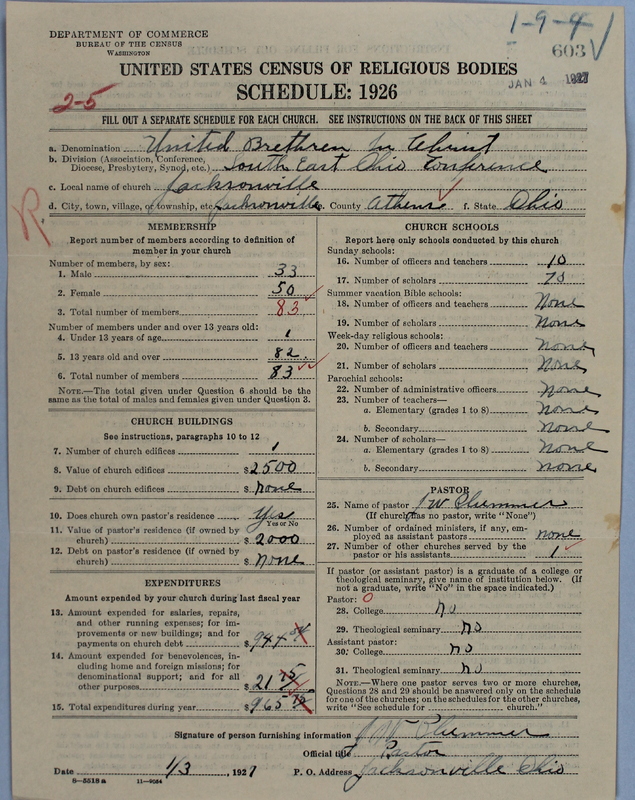 1-9-4
603
DEPARTMENT OF COMMERCE
BUREAU OF THE CENSUS
WASHINGTON
JAN 4 1927
UNITED STATES CENSUS OF RELIGIOUS BODIES
SCHEDULE: 1926
2-5
FILL OUT A SEPARATE SCHEDULE FOR EACH CHURCH. SEE INSTRUCTIONS ON THE BACK OF THIS SHEET
a. Denomination United Brethren in Christ
b. Division (Association, Conference, Diocese, Presbytery, Synod, etc.) South East Ohio Conference
c. Local name of church Jacksonville
d. City, town, village, or township, etc. Jacksonville e. County Athens f. State Ohio
R.
MEMBERSHIP
Report number of members according to definition of
member in your church
Number of members, by sex:
1. Male 33
2. Female 50
3. Total number of members 83
Number of members under and over 13 years old:
4. Under 13 years of age 1
5. 13 years old and over 82
6. Total number of members 83
NOTE.—The total given under Question 6 should be
same as the total of males and females given under Question 3.
CHURCH BUILDINGS
See instructions, paragraphs 10 to 12
7. Number of church edifices 1
8. Value of church edifices $2500
9. Debt on church edifices $ None
10. Does church own pastor's residence Yes
Yes or No
11. Value of pastor's residence (if owned by
church) $ 2000
12. Debt on pastor's residence (if owned by
church) $ None
EXPENDITURES
Amount expended by your church during last fiscal year
13. Amount expended for salaries, repairs,
and other running expenses; for im-
provements or new buildings; and for
payments on church debt $ 944
14. Amount expended for benevolences, in-
cluding home and foreign missions; for
denominational support; and for all
other purposes $ 21 75
15. Total expenditures during year $965 75
CHURCH SCHOOLS
Report here only schools conducted by this church
Sunday schools:
16. Number of officers and teachers 10
17. Number of scholars 75
Summer vacation Bible schools:
18. Number of officers and teachers None
19. Number of scholars None
Week-day religious schools:
20. Number of officers and teachers None
21. Number of scholars None
Parochial schools:
22. Number of administrative officers None
23. Number of teachers—
a. Elementary (grades 1 to 8) None
b. Secondary None
24. Number of scholars—
a. Elementary (grades 1 to 8) None
b. Secondary None
PASTOR
25. Name of pastor J W Plummer
(If church has no pastor, write "None")
26. Number of ordained ministers, if any, em-
ployed as assistant pastors none
27. Number of other churches served by the
pastor or his assistants 1
If pastor (or assistant pastor) is a graduate of a college or
theological seminary, give name of institution below. (If
not a graduate, write "No" in the space indicated.)
Pastor: 0
28. College no
29. Theological seminary no
Assistant pastor:
30. College no
31. Theological seminary no
NOTE.—Where one pastor serves two or more churches,
Questions 28 and 29 should be answered only on the schedule
for one of the churches; on the schedules for the other churches,
write "See schedule for church."
Signature of person furnishing information J W Plummer
Official title Pastor
Date 1/3, 1927 P. O. Address Jacksonville Ohio
8—5518 a 11—9084